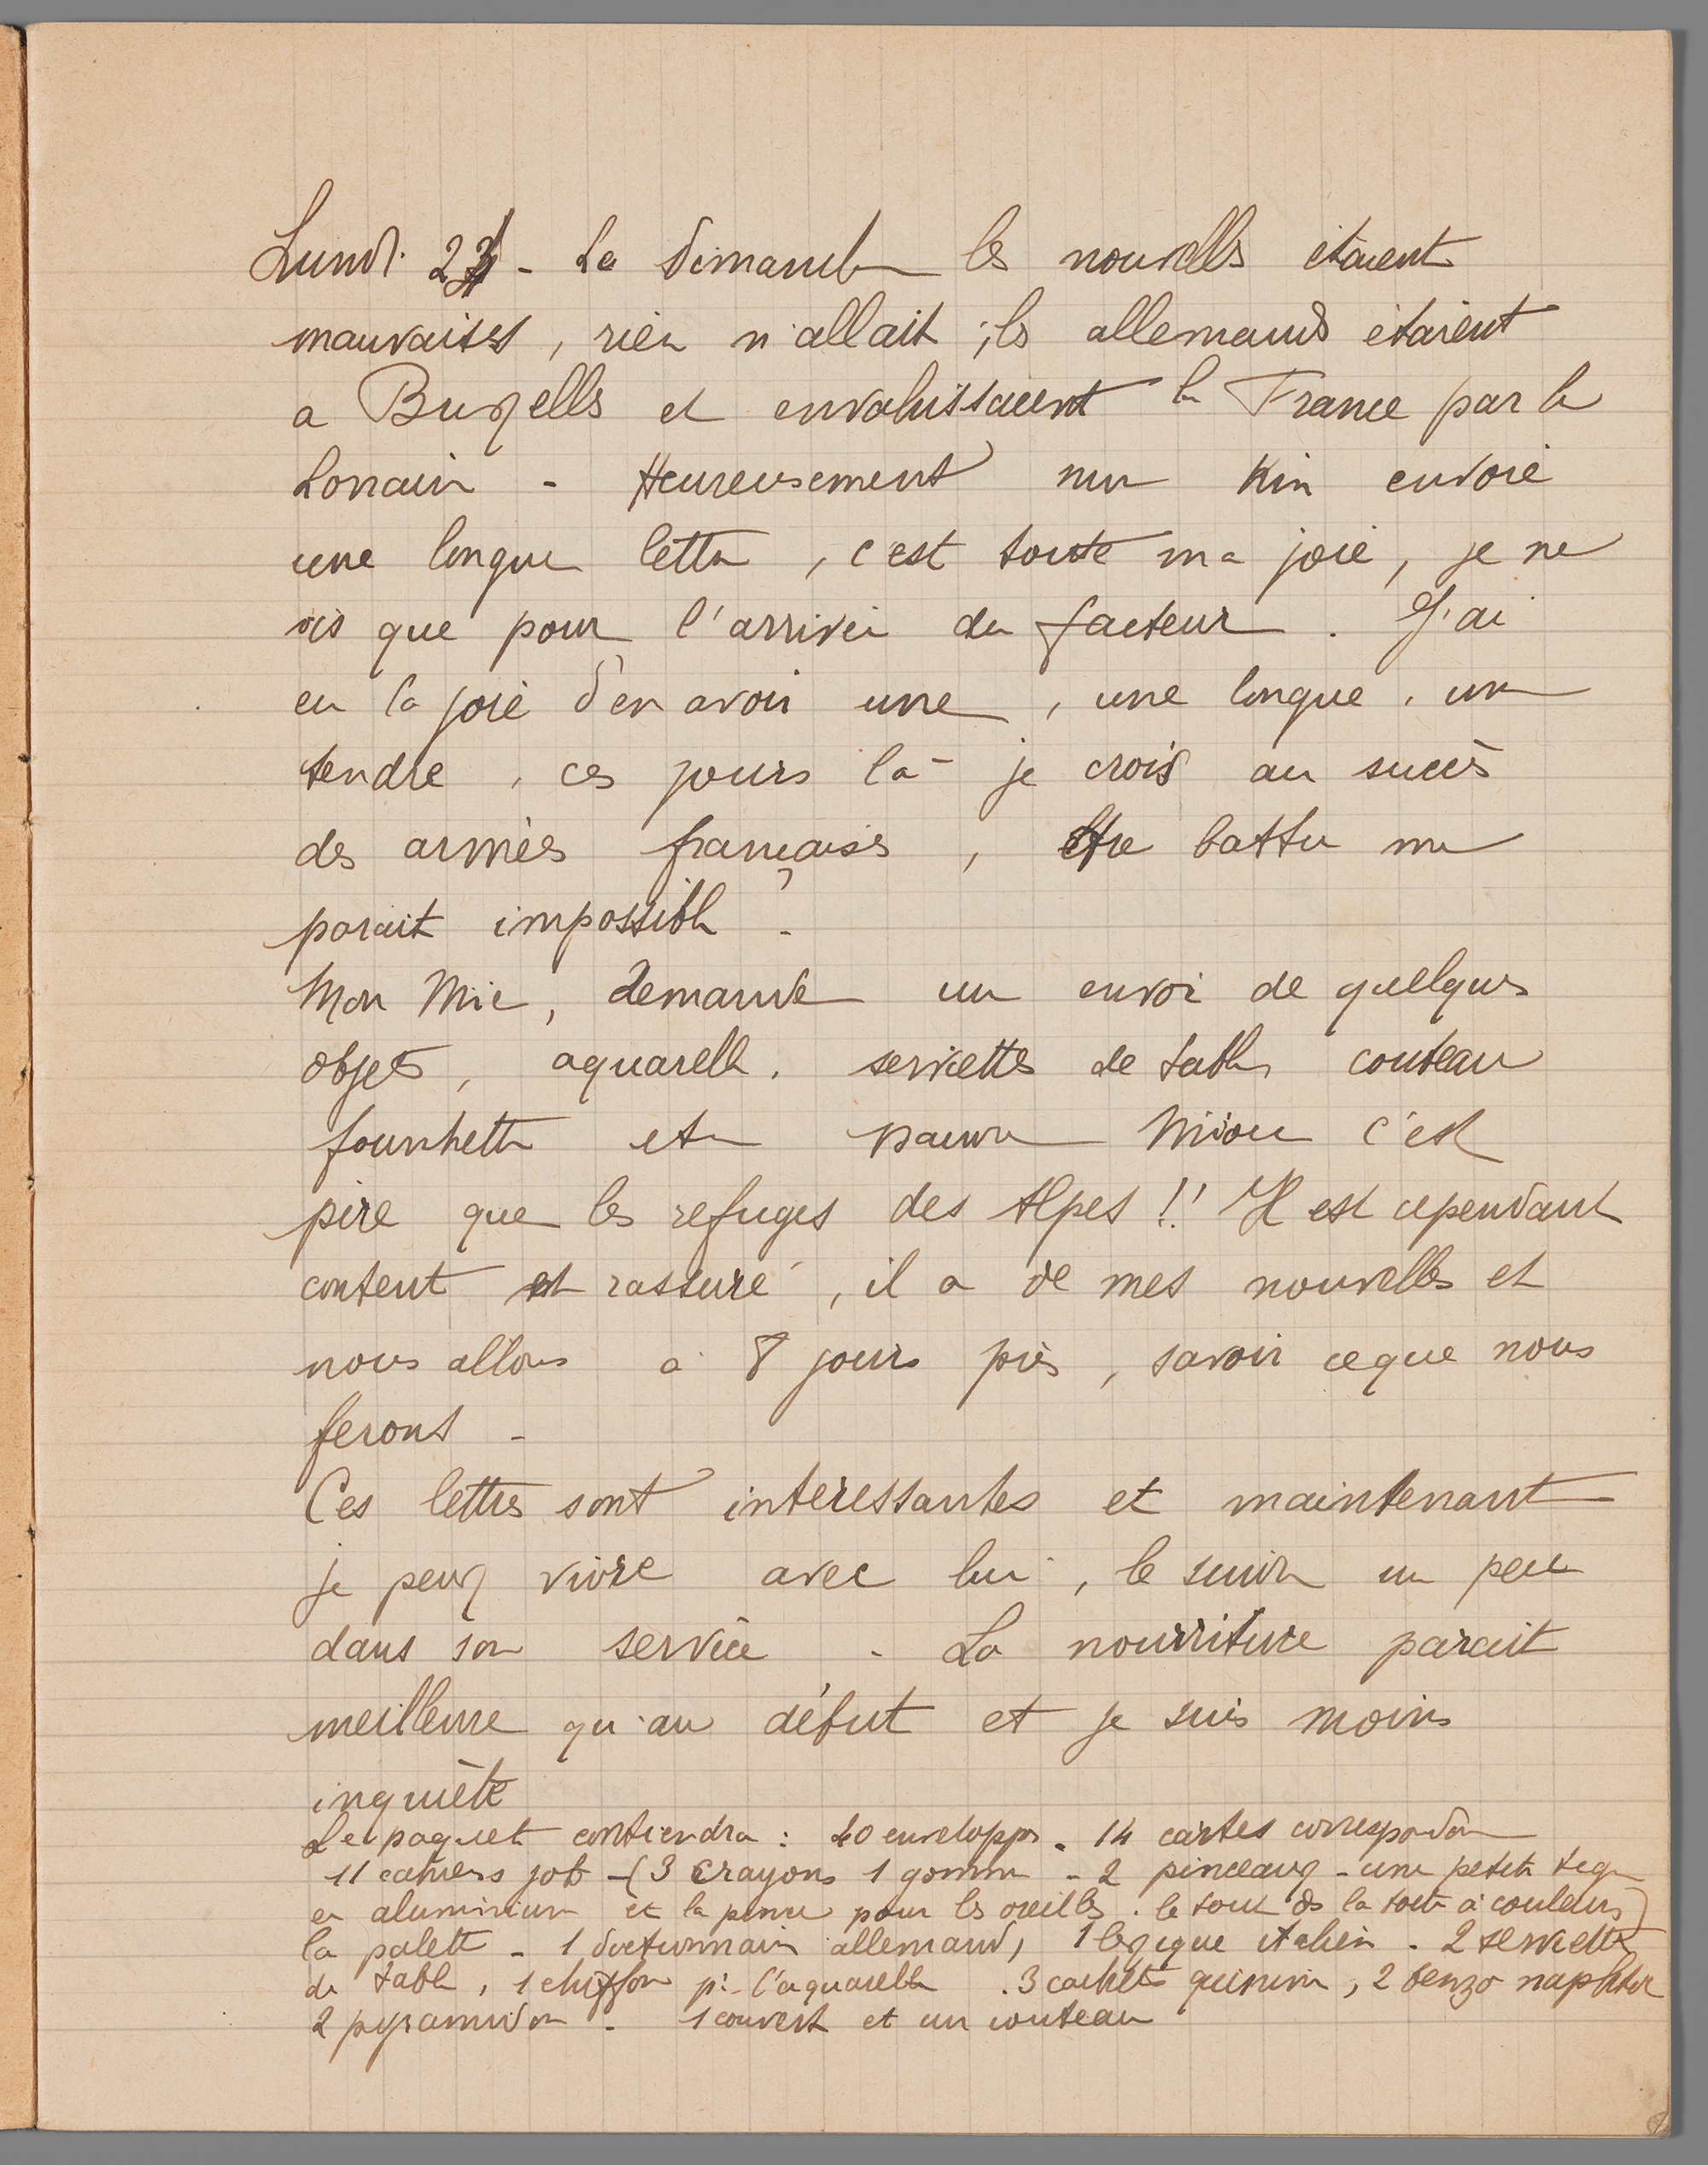 Lundi 24 - Le dimanche les nouvelles étaient
mauvaises, rien n'allait ; les allemands étaient
a Bruxelles et envahissaient la France par la
Lorraine - Heureusement mon Kin envoie
une longue lettre, c'est toute ma joie, je ne
vis que pour l'arrivée du facteur. J'ai
eu la joie d'en avoir une, une longue, une
tendre, ces jours là je crois au succès
des armées françaises, être battu me
parait impossible -
Mon Mic, demande un envoi de quelques
objets, aquarelle, serviettes de table, couteau
fourchette etc pauvre Miou c'est
pire que les refuges des Alpes !! Il est cependant
content et rassuré, il a de mes nouvelles et
nous allons à 8 jours près, savoir ce que nous
ferons -
Ces lettres sont interessantes et maintenant
je peux vivre avec lui, le suivre un peu
dans son service - La nourriture parait
meilleure qu'au début et je suis moins
inquiète
Le paquet contiendra : 40 enveloppes - 14 cartes correspondance
11 cahiers job - (3 crayons 1 gomme - 2 pinceaux - une petite
en aluminium et la pour les oreilles. le tout ds la boite à couleurs)
la palette - 1 dictionnaire allemand, 1 lexique italien - 2 serviettes
de table, 1 chiffon pr l'aquarelle . 3 cachets quinine, 2 benzo naphtol
2 pyramidon - 1 couvert et un couteau